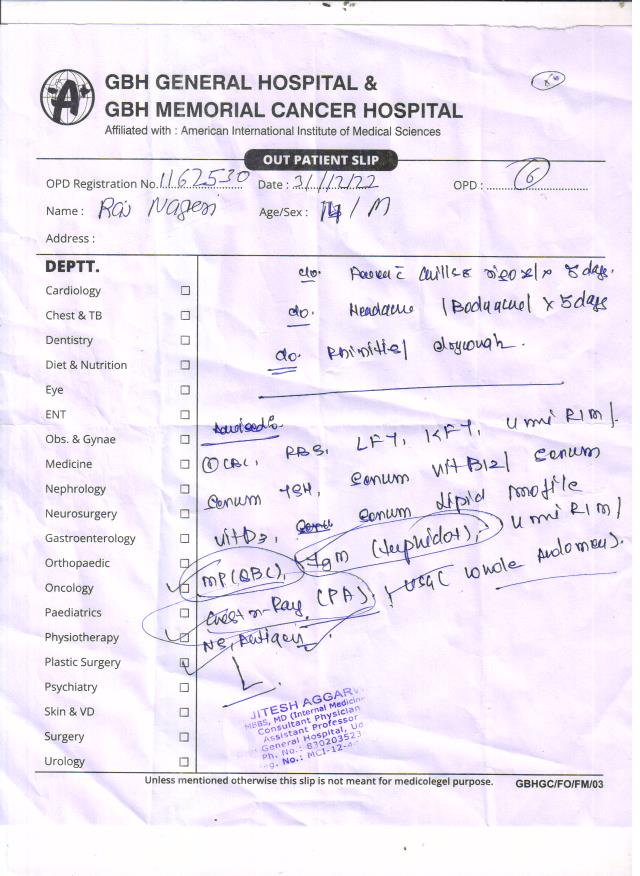 GBH GENERAL HOSPITAL &
GBH MEMORIAL CANCER HOSPITAL
Affiliated with : American International Institute of Medical Sciences
OUT PATIENT SLIP
OPD Registration No. 1162530 Date : 31/12/22 OPD : 6
Name : Raj Age/Sex : 14 / M
Address :
DEPTT.
Cardiology
Chest & TB
Dentistry
Diet & Nutrition
Eye
ENT
Obs. & Gynae
Medicine
Nephrology
Neurosurgery
Gastroenterology
Orthopaedic
Oncology
Paediatrics
Physiotherapy
Plastic Surgery
Psychiatry
Skin & VD
Surgery
Urology
c/o. chills x 5 days.
c/o. Headache / Bodyache / x 5 days
c/o. Rhinitis / dry cough.
① CBC, RBS, LFT, KFT, Urine R/M /
Serum TSH, Serum Vit B12 / Serum
Vit D3, Serum Lipid Profile
MP (QBC), IgM (Typhidot), Urine R/M /
Chest X-Ray (PA), USG whole Abdomen.
NS1 Antigen
JITESH AGGARW
MBBS, MD (Internal Medicine
Consultant Physician
Assistant Professor
General Hospital, Ud
Ph. No.: 830203523
g. No.: MCI-12-4
Unless mentioned otherwise this slip is not meant for medicolegel purpose. GBHGC/FO/FM/03